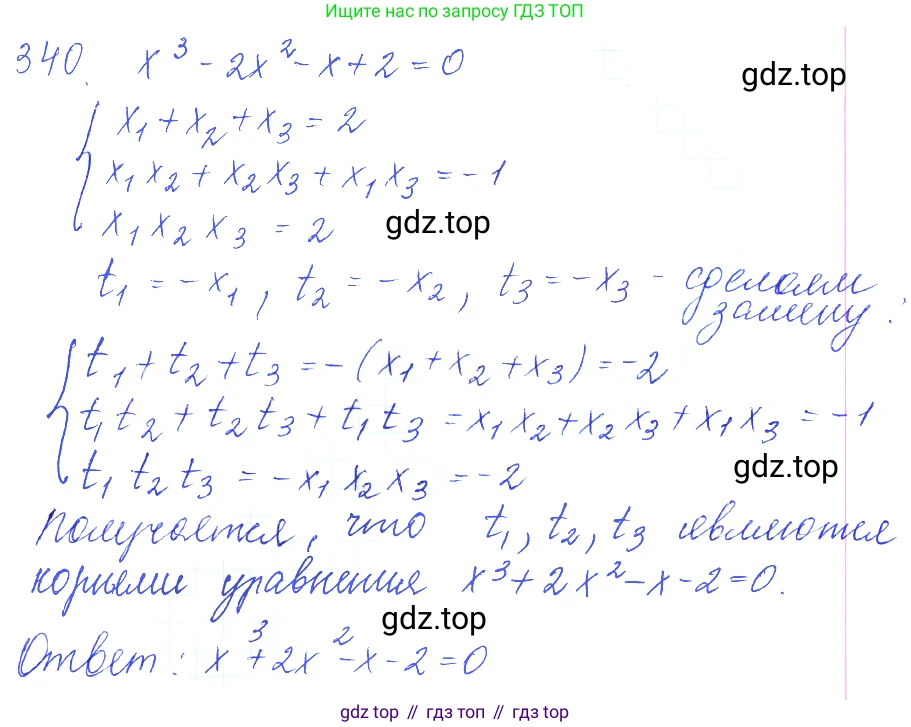 Ищите нас по запросу ГДЗ ТОП
340. x³ - 2x² - x + 2 = 0
gdz.top
x₁ + x₂ + x₃ = 2
x₁x₂ + x₂x₃ + x₁x₃ = -1
x₁x₂x₃ = 2
gdz.top
t₁ = -x₁, t₂ = -x₂, t₃ = -x₃ - сделаем
замену:
t₁ + t₂ + t₃ = -(x₁ + x₂ + x₃) = -2
t₁t₂ + t₂t₃ + t₁t₃ = x₁x₂ + x₂x₃ + x₁x₃ = -1
t₁t₂t₃ = -x₁x₂x₃ = -2
gdz.top
Получается, что t₁, t₂, t₃ являются
корнями уравнения x³ + 2x² - x - 2 = 0.
gdz.top
Ответ: x³ + 2x² - x - 2 = 0
gdz top // гдз топ // gdz top